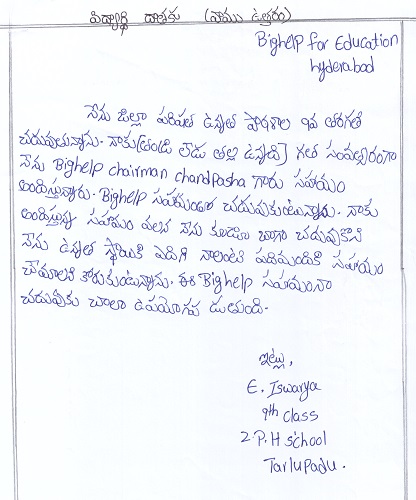 విద్యార్థి దాతకు (వాము ఉత్తరం)
Bighelp for Education
Hyderabad
నేను జిల్లా పరిషత్ ఉన్నత పాఠశాల 9వ తరగతి
చదువుతున్నాను. నాకు (తండ్రి లేడు తల్లి ఉన్నది) గత సంవత్సరంగా
నేను Bighelp chairman chandpasha గారు సహాయం
అందిస్తున్నారు. Bighelp సహాయంతో చదువుకుంటున్నాను. నాకు
అందిస్తున్న సహాయం వలన నేను కూడా బాగా చదువుకొని
నేను ఉన్నత స్థాయికి ఎదిగి నాలాంటి పదిమందికి సహాయం
చేయాలని కోరుకుంటున్నాను. ఈ Bighelp సహాయం నా
చదువుకు చాలా ఉపయోగప డుతుంది.
ఇట్లు,
E. Iswarya
9th class
Z.P.H school
Tarlupadu.